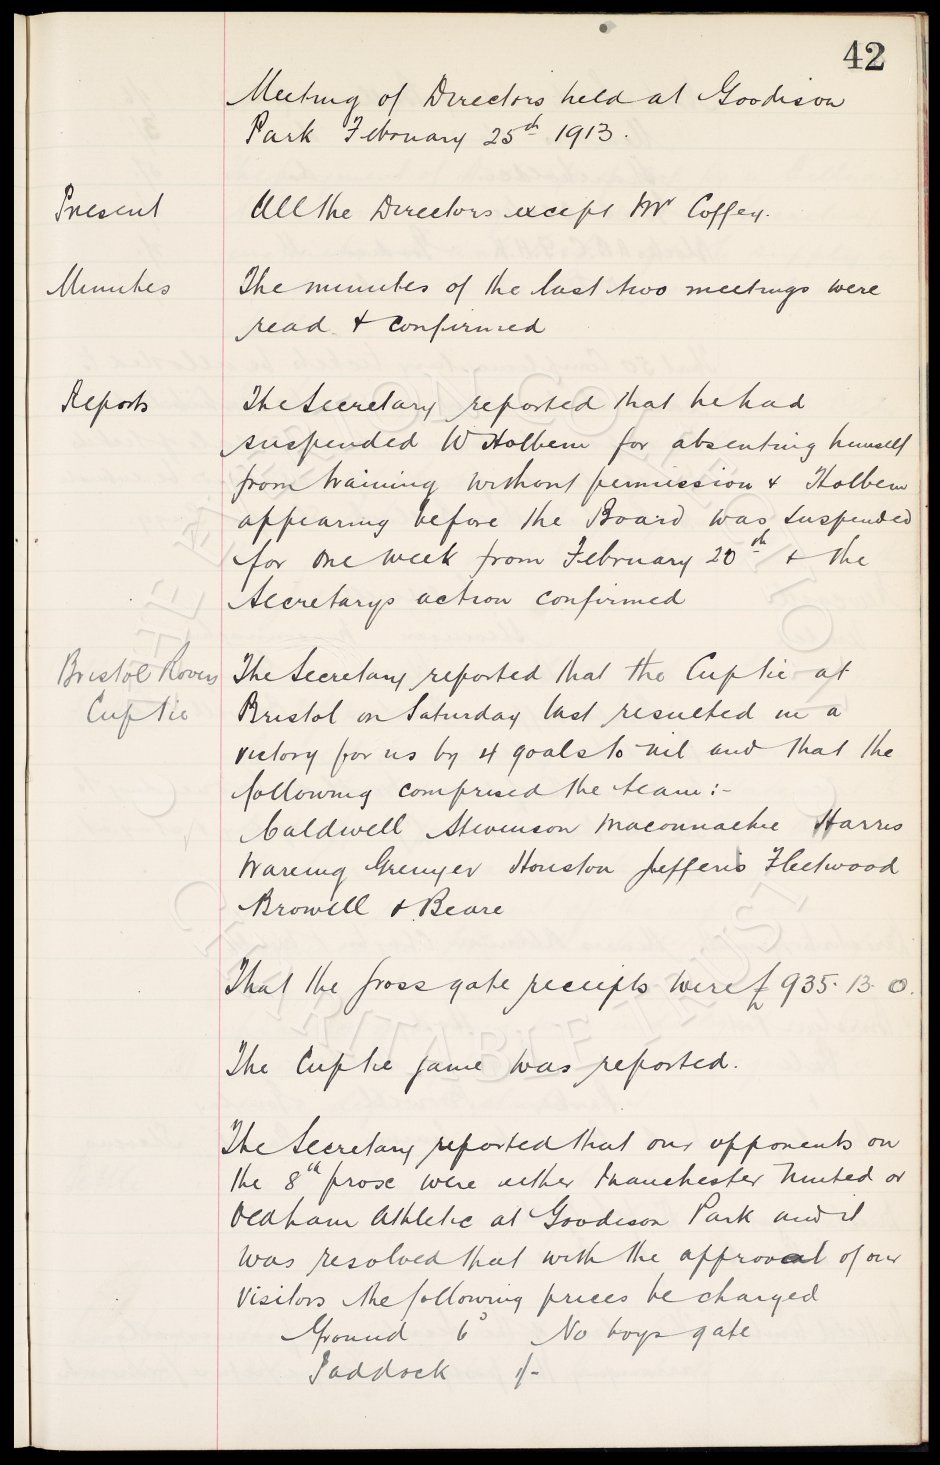 42
Meeting of Directors held at Goodison
Park February 25th 1913.
Present All the Directors except Mr Coffey.
Minutes The minutes of the last two meetings were
read & confirmed
Reports The Secretary reported that he had
suspended W Holbem for absenting himself
from training without permission & Holbem
appearing before the Board was suspended
for one week from February 20th & the
Secretarys action confirmed
Bristol Rovers The Secretary reported that the Cuptie at
Cuptie Bristol on Saturday last resulted in a
victory for us by 4 goals to nil and that the
following comprised the team:-
Caldwell Stevenson Maconnachie Harris
Wareing Grenyer Houston Jefferis Fleetwood
Browell & Beare
That the gross gate receipts were £935.13.0.
The Cuptie game was reported.
The Secretary reported that our opponents on
the 8th prox were either Manchester United or
Oldham Athletic at Goodison Park and it
was resolved that with the approval of our
visitors the following prices be charged
Ground 6d No boys gate
Paddock 1/-